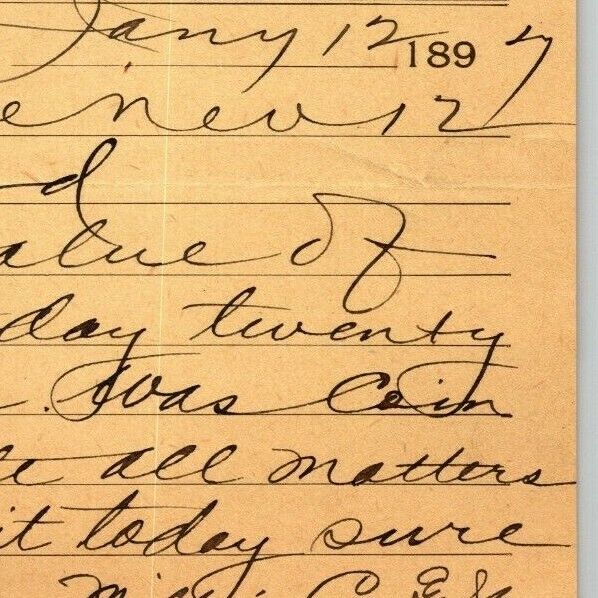 Jany 12 1897
Nev 12
d
alue of
day twenty
. Was Coin
all matters
it today sure